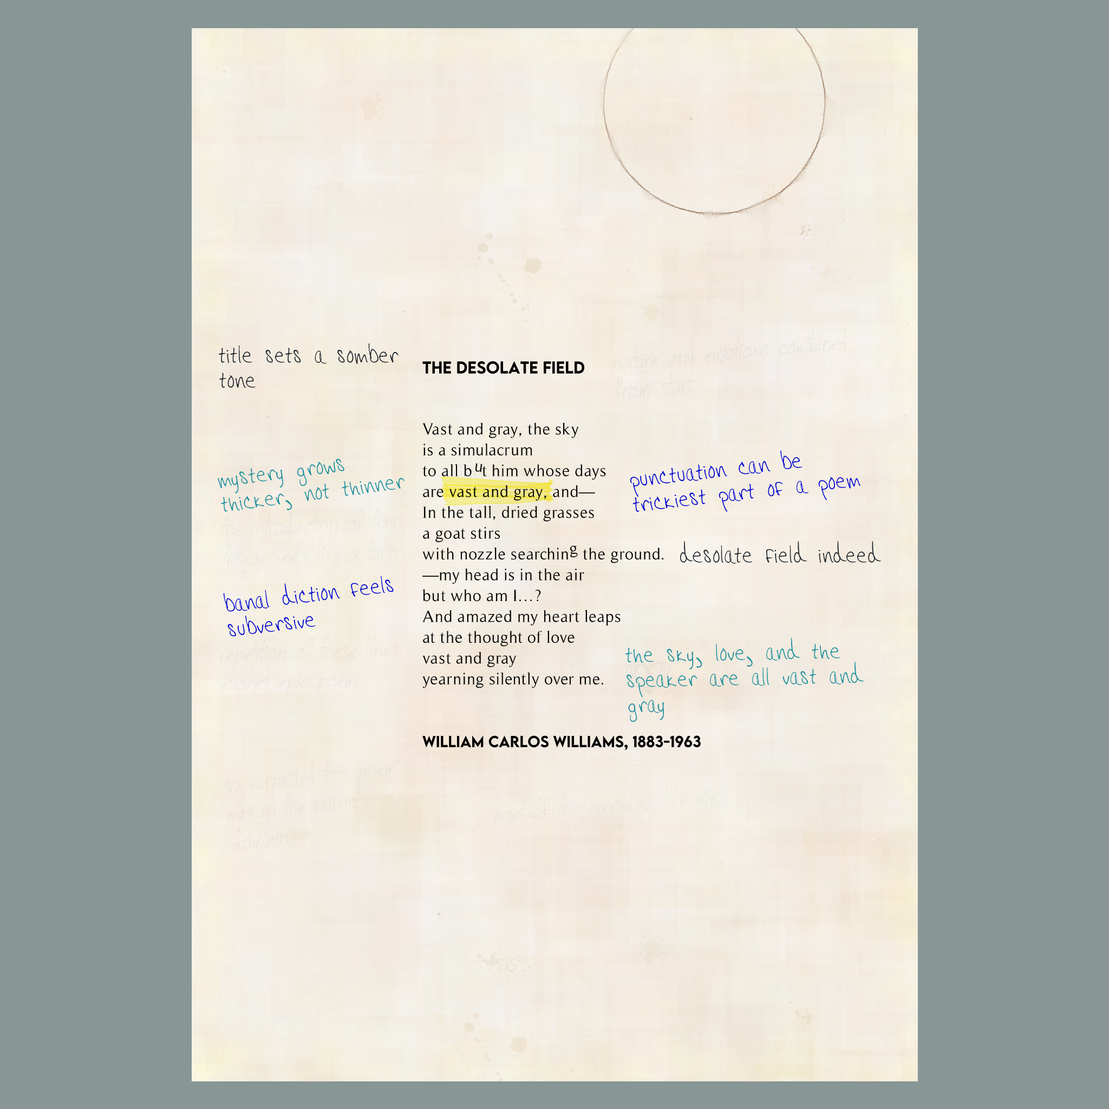 title sets a somber
tone
THE DESOLATE FIELD
nature and emotions combined
from start
Vast and gray, the sky
is a simulacrum
to all but him whose days
are vast and gray, and—
In the tall, dried grasses
a goat stirs
with nozzle searching the ground.
—my head is in the air
but who am I...?
And amazed my heart leaps
at the thought of love
vast and gray
yearning silently over me.
mystery grows
thicker, not thinner
punctuation can be
trickiest part of a poem
desolate field indeed
banal diction feels
subversive
repetition of these lines
the sky, love, and the
speaker are all vast and
gray
WILLIAM CARLOS WILLIAMS, 1883-1963
so surprised this poem
was in the public
domain
of the everyday, like